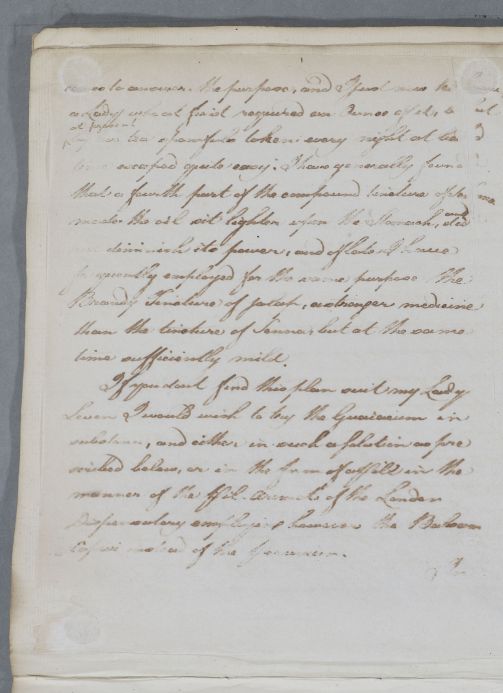 to answer the purpose, and I find now the
a Lady who at first required an Ounce of it, &
at present
tea spoonfuls taken every night at bed
time escaped quite easy. I have generally found
that a fourth part of the compound tincture of
made the oil sit lighter upon the Stomach, and did
not diminish its power, and of late I have
frequently employed for the same purpose the
Brandy Tincture of Jalap, a stronger medicine
than the tincture of Senna, but at the same
time sufficiently mild.
If you dont find this plan suit my Lady
Leven I would wish to try the Guaiacum in
substance, and either in such a solution as pre
scribed below, or in the form of a pill in the
manner of the Pil. Aromat. of the London
Dispensatory employing however the Balsam
Capivi instead of the